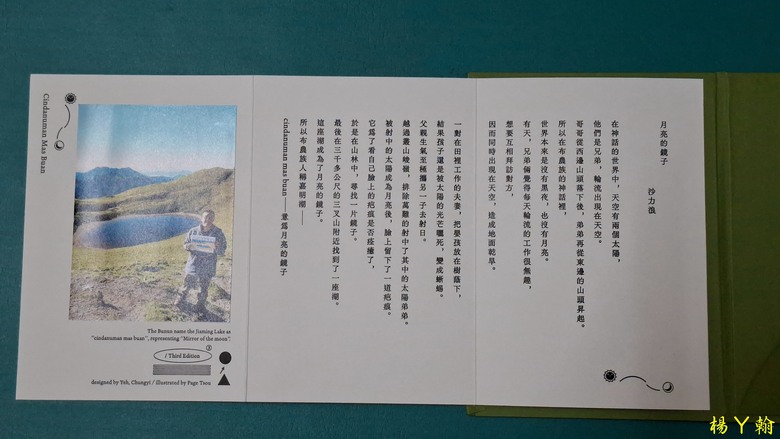 月亮的鏡子
沙力浪
在神話的世界中，天空有兩個太陽，
他們是兄弟，輪流出現在天空。
哥哥從西邊山頭落下後，弟弟再從東邊的山頭昇起。
所以在布農族的神話裡，
世界本來是沒有黑夜，也沒有月亮。
有天，兄弟倆覺得每天輪流的工作很無趣，
想要互相拜訪對方，
因而同時出現在天空，造成地面乾旱。
一對在田裡工作的夫妻，把嬰孩放在樹蔭下，
結果孩子還是被太陽的光芒曬死，變成蜥蜴。
父親生氣至極攜另一子去射日。
越過叢山峻嶺，排除萬難的射中了其中的太陽弟弟。
被射中的太陽成為月亮後，臉上留下了一道疤痕。
它為了看自己臉上的疤痕是否痊癒了，
於是在山林中，尋找一片鏡子。
最後在三千多公尺的三叉山附近找到了一座湖。
這座湖成為了月亮的鏡子。
所以布農族人稱嘉明湖——
cindanuman mas buan——意為月亮的鏡子
Cindanuman Mas Buan
The Bunun name the Jiaming Lake as
"cindanuman mas buan", representing "Mirror of the moon".
③
/ Third Edition
designed by Yeh, Chungyi / illustrated by Page Tsou
楊丫翰